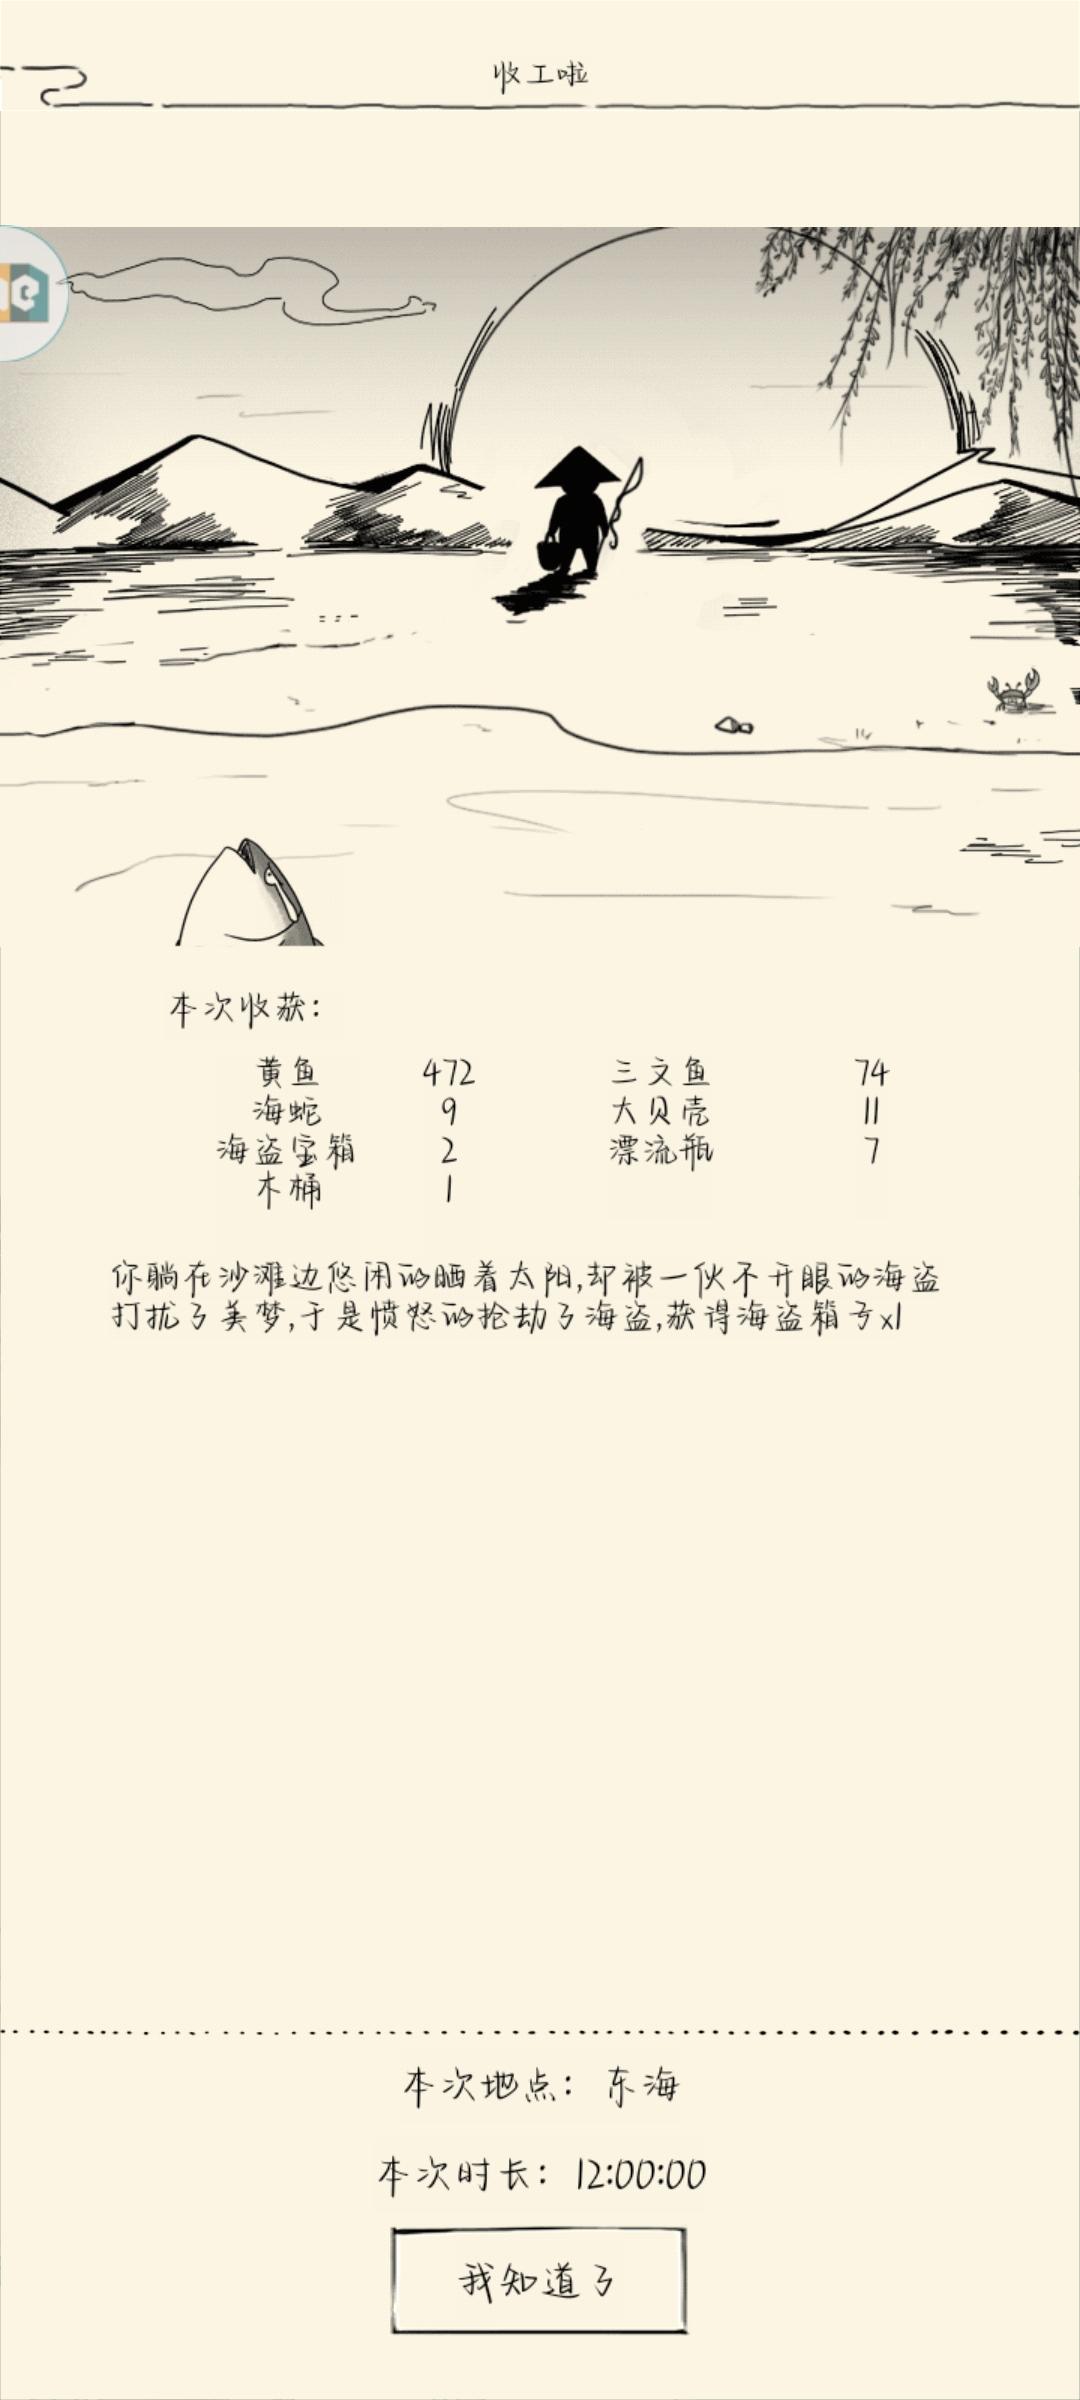 收工啦
本次收获:
黄鱼 472 三文鱼 74
海蛇 9 大贝壳 11
海盗宝箱 2 漂流瓶 7
木桶 1
你躺在沙滩边悠闲的晒着太阳,却被一伙不开眼的海盗
打扰了美梦,于是愤怒的抢劫了海盗,获得海盗箱子x1
本次地点: 东海
本次时长: 12:00:00
我知道了